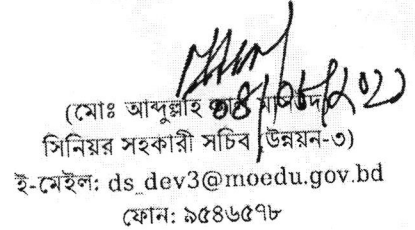 (মোঃ আব্দুল্লাহ আল মাসউদ)
সিনিয়র সহকারী সচিব (উন্নয়ন-৩)
ই-মেইল: ds_dev3@moedu.gov.bd
ফোন: ৯৫৪৬৫৭৮